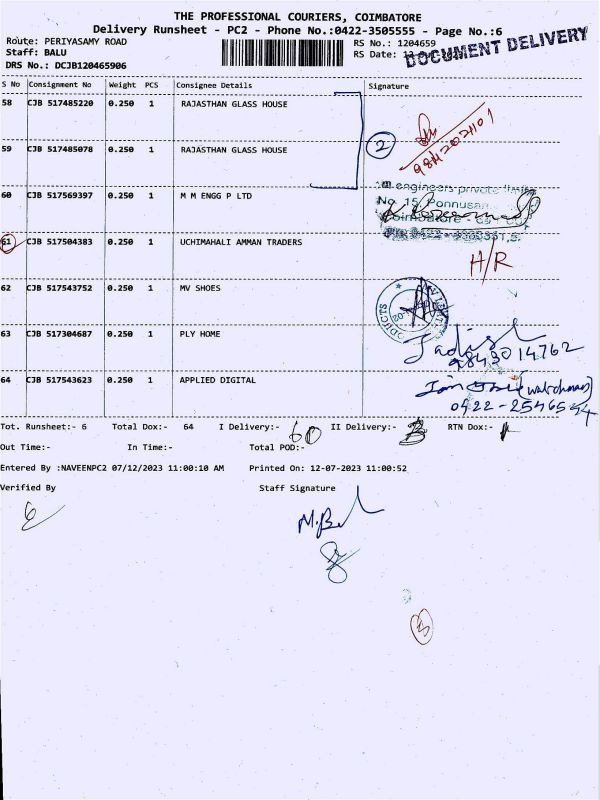 THE PROFESSIONAL COURIERS, COIMBATORE
Delivery Runsheet - PC2 - Phone No.:0422-3505555 - Page No.:6
Route: PERIYASAMY ROAD RS No.: 1204659
Staff: BALU RS Date:
DOCUMENT DELIVERY
DRS No.: DCJB120465906
S No Consignment No Weight PCS Consignee Details Signature
58 CJB 517485220 0.250 1 RAJASTHAN GLASS HOUSE
2
9842021101
59 CJB 517485078 0.250 1 RAJASTHAN GLASS HOUSE
60 CJB 517569397 0.250 1 M M ENGG P LTD
engineers private limited
No. 15, Ponnusam
Coimbatore
61 CJB 517504383 0.250 1 UCHIMAHALI AMMAN TRADERS
H/R
62 CJB 517543752 0.250 1 MV SHOES
63 CJB 517304687 0.250 1 PLY HOME
9843014762
64 CJB 517543623 0.250 1 APPLIED DIGITAL
(watchman)
0422-2546544
Tot. Runsheet:- 6 Total Dox:- 64 I Delivery:- 60 II Delivery:- 3 RTN Dox:- 1
Out Time:- In Time:- Total POD:-
Entered By :NAVEENPC2 07/12/2023 11:00:10 AM Printed On: 12-07-2023 11:00:52
Verified By Staff Signature